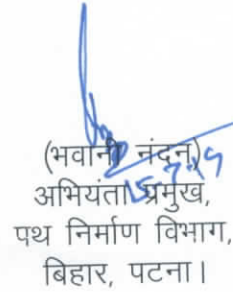 (भवानी नंदन)
15.7.19
अभियंता प्रमुख,
पथ निर्माण विभाग,
बिहार, पटना।